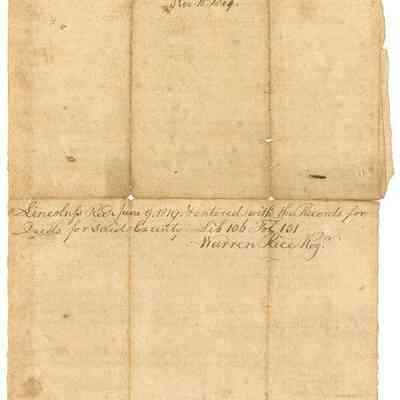 Nov 11. 1809.
Lincoln ss Rec.d June 9. 1819. & entered with the Records for
Deeds for said County Lib 106 Fol 151
Warren Rice Reg.r